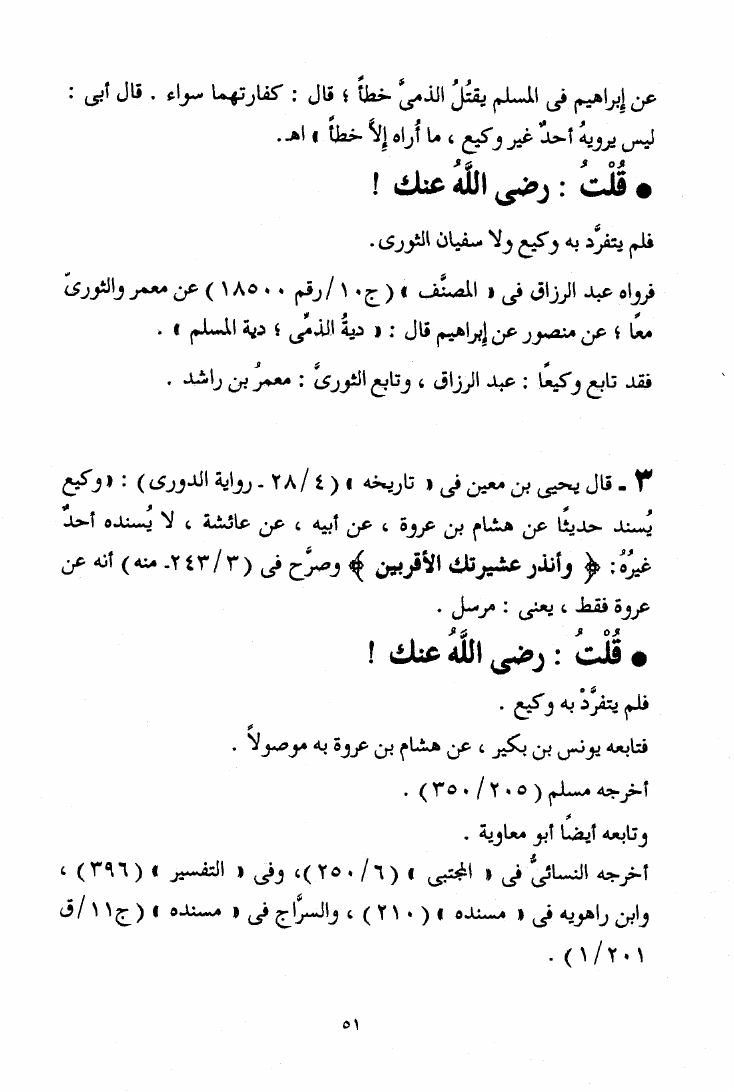 عن إبراهيم فى المسلم يقتُلُ الذمىَّ خطأً ؛ قال : كفارتهما سواء . قال أبى :
ليس يرويهُ أحدٌ غير وكيع ، ما أُراه إلاَّ خطأً » اهـ.
● قُلْتُ : رضى اللَّهُ عنك !
فلم يتفرَّد به وكيع ولا سفيان الثورى.
فرواه عبد الرزاق فى « المصنَّف » ( ج١٠/رقم ١٨٥٠٠ ) عن معمر والثورىّ
معًا ؛ عن منصور عن إبراهيم قال : « ديةُ الذمِّى ؛ دية المسلم » .
فقد تابع وكيعًا : عبد الرزاق ، وتابع الثورىَّ : معمرُ بن راشد .
٣ - قال يحيى بن معين فى « تاريخه » ( ٢٨/٤ - رواية الدورى ) : «وكيع
يُسند حديثًا عن هشام بن عروة ، عن أبيه ، عن عائشة ، لا يُسنده أحدٌ
غيرُهُ: ﴿ وأنذر عشيرتك الأقربين ﴾ وصرَّح فى ( ٢٤٣/٣- منه ) أنه عن
عروة فقط ، يعنى : مرسل .
● قُلْتُ : رضى اللَّهُ عنك !
فلم يتفرَّدْ به وكيع .
فتابعه يونس بن بكير ، عن هشام بن عروة به موصولاً .
أخرجه مسلم ( ٣٥٠/٢٠٥ ) .
وتابعه أيضًا أبو معاوية .
أخرجه النسائىُّ فى « المجتبى » ( ٢٥٠/٦ )، وفى « التفسير » ( ٣٩٦ ) ،
وابن راهويه فى « مسنده » ( ٢١٠ ) ، والسرَّاج فى « مسنده » ( ج١١/ق
١/٢٠١ ) .
٥١